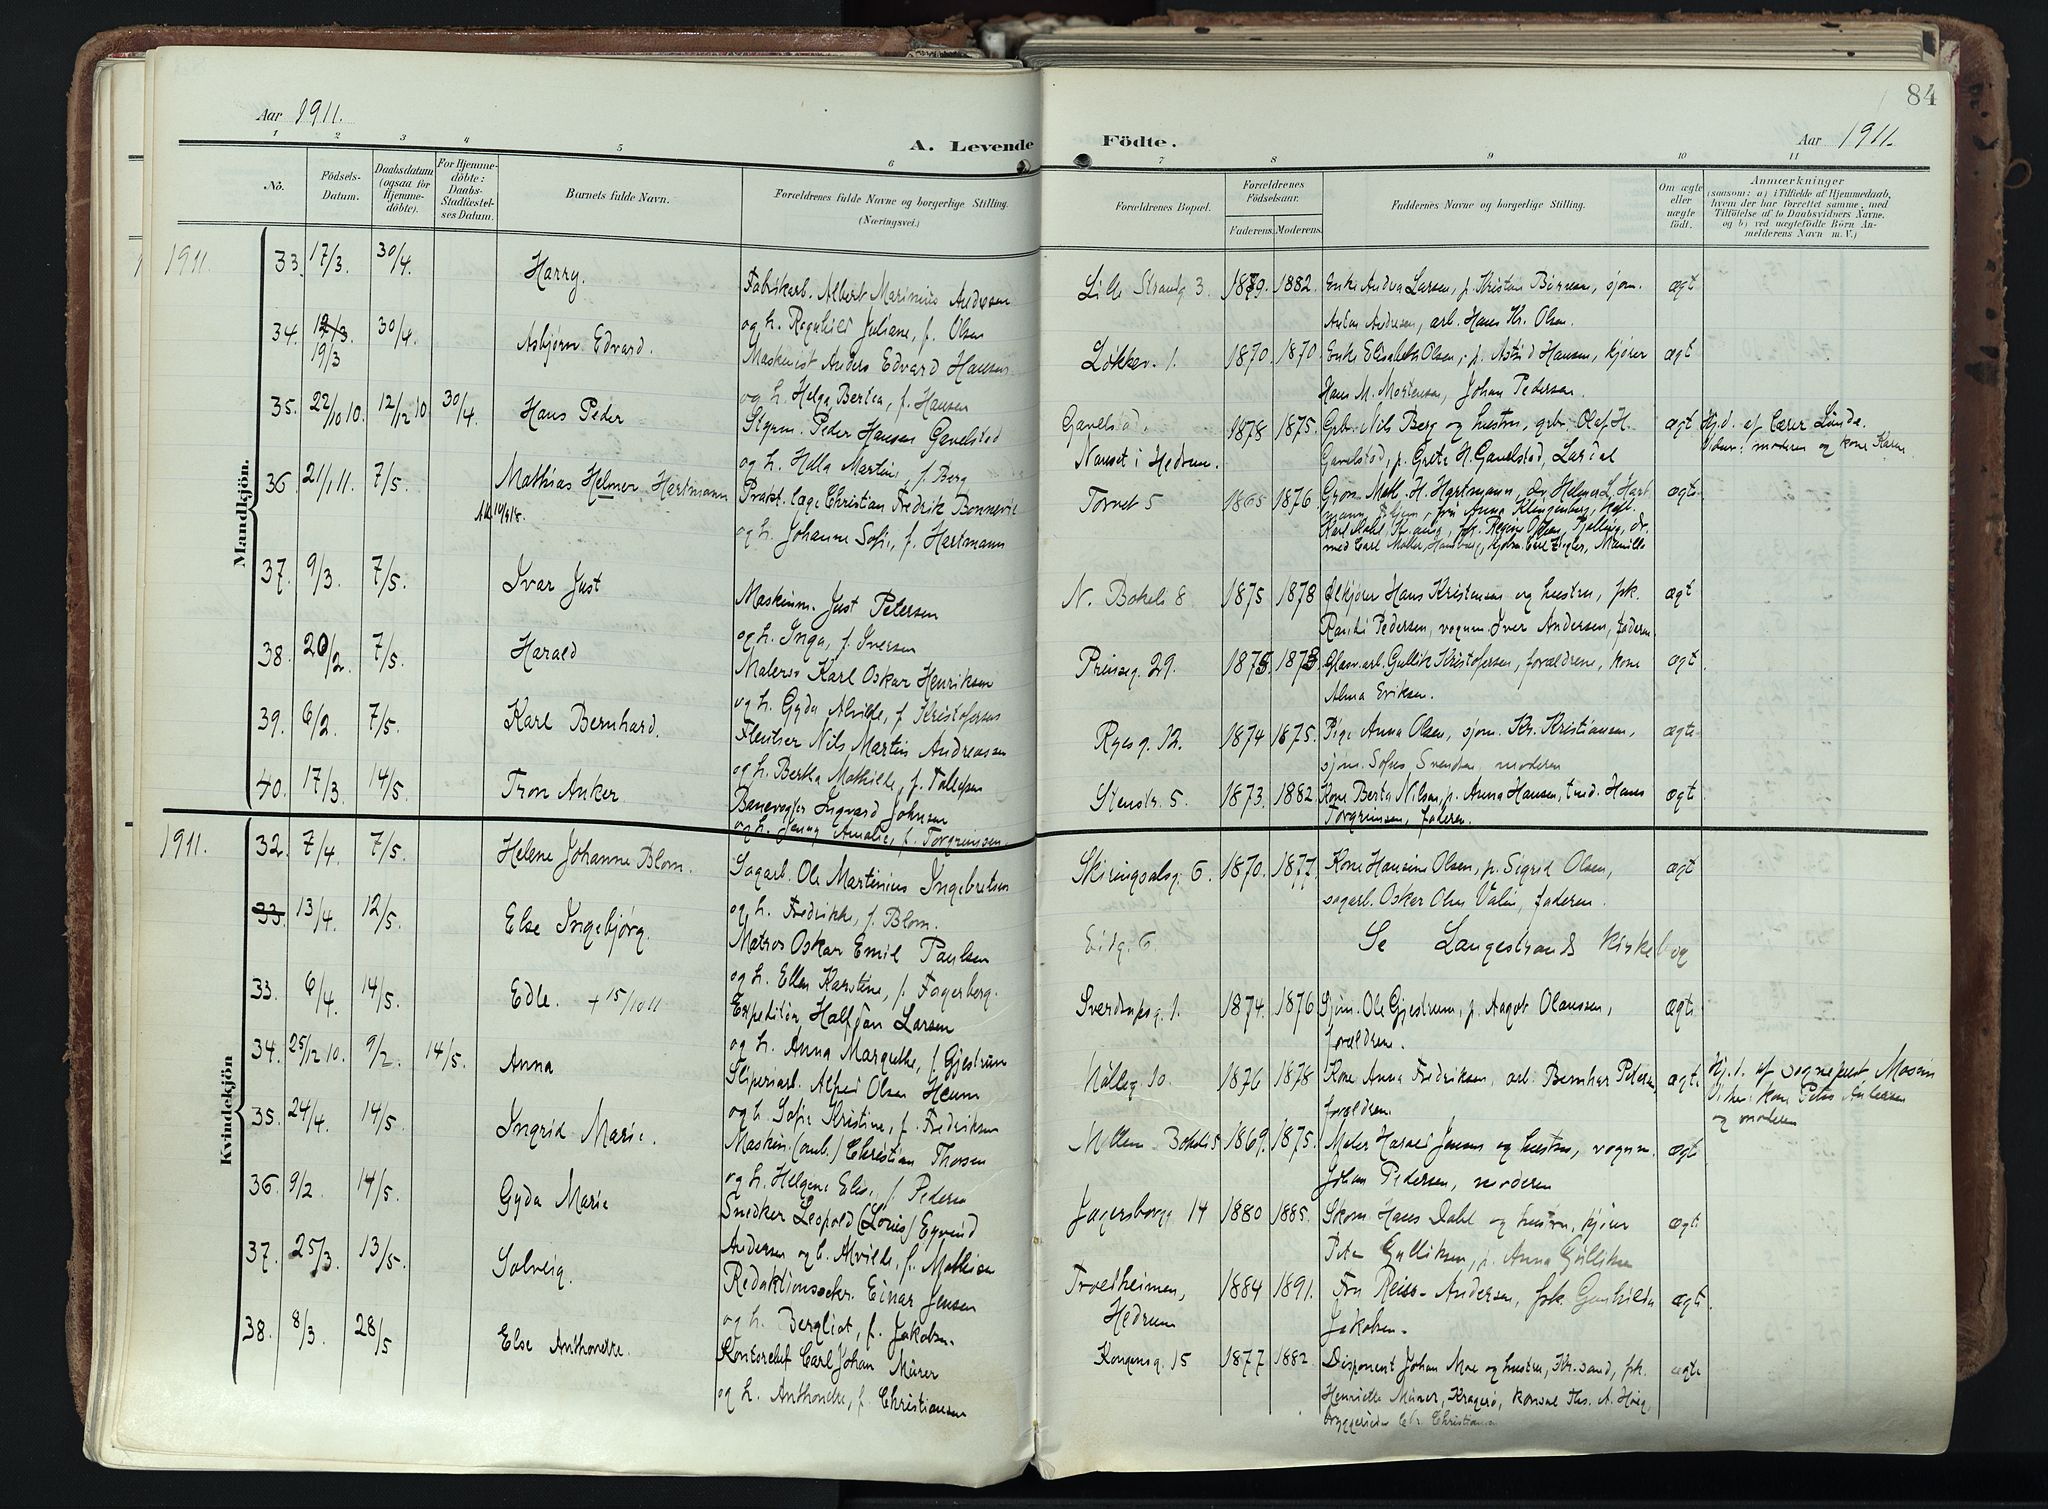 84
Aar 1911.
A. Levende Födte.
Aar 1911.
1 2 3 4 5 6 7 8 9 10 11
No.
Födsels-Datum.
Daabsdatum (ogsaa for Hjemme-döbte).
For Hjemme-döbte: Daabs-Stadfæstel-ses Datum.
Barnets fulde Navn.
Forældrenes fulde Navne og borgerlige Stilling. (Næringsvei.)
Forældrenes Bopæl.
Forældrenes Födselsaar.
Faderens. Moderens.
Faddernes Navne og borgerlige Stilling.
Om ægte eller uægte födt.
Anmærkninger
(saasom: a) i Tilfælde af Hjemmedaab,
hvem der har forrettet samme, med
Tilföielse af to Daabsvidners Navne,
og b) ved uægtefödte Börn An-
melderens Navn m. V.)
Mandkjön.
1911. 33. 17/3. 30/4. Harry. Fabrikarb. Albert Marinius Andresen
og h. Ragnhild Juliane, f. Olsen
Lille Strandg 3. 1879. 1882. Enke Andrea Larsen, p. Kristine Børresen, sjøm.
Anton Andresen, arb. Hans Kr. Olsen. ægt
34. 12/3 19/3 30/4. Asbjørn Edvard. Maskinist Anders Edvard Hansen
og h. Helga Bertea, f. Hansen
Løkkev. 1. 1870. 1870. Enke Elisabeth Olsen, p. Astrid Hansen, kjører
Hans M. Mortensen, Johan Pedersen. ægt
35. 22/10 10. 12/12 10 30/4. Hans Peder Styrm. Peder Hansen Gavelstad
og h. Hella Martine, f. Berg
Gavelstad,
Nanset i Hedrum. 1878 1875. Grbr. Nils Berg og hustru, grbr. Olaf H.
Gavelstad, p. Grete H. Gavelstad, Lardal ægt Hj.d. af lærer Lunde.
Vidner: moderen og kone Karen
36. 21/1 11. 7/5. Mathias Helmer Hartmann Prakt. læge Christian Fredrik Bonnevie
og h. Johanne Sofie, f. Hartmann
Torvet 5 1865 1876 Gros. Math. H. Hartmann, dr. Helmer L. Hart-
mann, frú Anna Klingenberg,
ægte
37. 9/3. 7/5. Ivar Just Maskinm. Just Petersen
og h. Inga, f. Iversen
N. Bøkeli 8 1875 1878 Ølkjører Hans Kristensen og hustru, frk.
Ranci Pedersen, vognm. Iver Andersen, faderen ægt
38. 20/2 7/5. Harald Malersv. Karl Oskar Henriksen
og h. Gyda Alvilde, f. Kristofersen
Prinseg. 29. 1875. 1873. Glasv.arb. Gullik Kristofersen, forældrene, kone
Alma Eriksen. ægt.
39. 6/2 7/5. Karl Bernhard. Flentser Nils Martin Andreassen
og h. Berta Mathilde, f. Tollefsen
Ryesg. 12. 1874 1875. Pige Anna Olsen, sjøm. Kr. Kristiansen,
sjøm. Sofus Svendsen, moderen ægte.
40. 17/3. 14/5. Tron Anker Banevogter Ingvard Johnsen
og h. Jenny Amalie, f. Torgrimsen
Stenstr. 5. 1873. 1882. Kone Berta Nilsen, p. Anna Hansen, tmd. Hans
Torgrimsen, faderen. ægt
Kvindekjön
1911. 32. 7/4. 7/5. Helene Johanne Blom. Sagarb. Ole Martinius Ingebretsen
og h. Fredrikke, f. Blom.
Skiringsalsg. 6. 1870. 1877. Kone Hansine Olsen, p. Sigrid Olsen,
sagarb. Oskar Olsen Valin, faderen. ægt
33 13/4. 12/5. Else Ingebjørg. Matros Oskar Emil Paulsen
og h. Ellen Karstine, f. Fagerberg.
Eidg. 6. Se Langestrands kirkebog
33. 6/4. 14/5. Edle. + 15/10 11 Expeditør Halfdan Larsen
og h. Anna Margrethe, f. Gjestrum
Sverdrupsg. 1. 1874. 1876 Sjøm. Ole Gjestrum, p. Aagot Olaussen,
forældrene. ægte.
34. 25/12 10. 9/2. 14/5. Anna Sliperiarb. Alfred Olsen Heum
og h. Sofie Kristine, f. Fredriksen
Mølleg. 10. 1876 1878 Kone Anna Fredriksen, arb. Bernhar Petersen,
forældrene. ægt. Hj.d. af sognepræst
Vidner: kone Petra Andersen
og moderen
35. 24/4. 14/5. Ingrid Marie. Maskin.(omb.) Christian Thorsen
og h. Helgine Elise, f. Pedersen
Mellem Bøkeli 5 1869. 1875. Maler Harald Jensen og hustru, vognm.
Johan Pedersen, moderen ægt.
36. 9/2 14/5. Gyda Marie Snedker Leopold (Louis) Eyvind
Andersen og h. Alvilde, f. Mathisen
Jegersborgg 14 1880 1885. Skom. Hans Dahl og hustru, kjører
Peter Gulliksen, p. Anna Gulliksen ægt
37. 25/3. 13/5. Solveig. Redaktionssekr. Einar Jensen
og h. Bergliot, f. Jakobsen.
Troldheimen,
Hedrum 1884 1891. Fru Reiss-Andersen, frk. Gunhilda
Jakobsen. ægt.
38. 8/3. 28/5 Else Anthonette. Kontorchef Carl Johan Mürer
og h. Anthonette, f. Christiansen
Kongensg. 15 1877 1882. Disponent Johan Moe og hustru, Kr.sand, frk.
Henriette Mürer, Kragerø, konsul Ths. A. Høeg,
bryggerieier Chr. Christiansen ægte